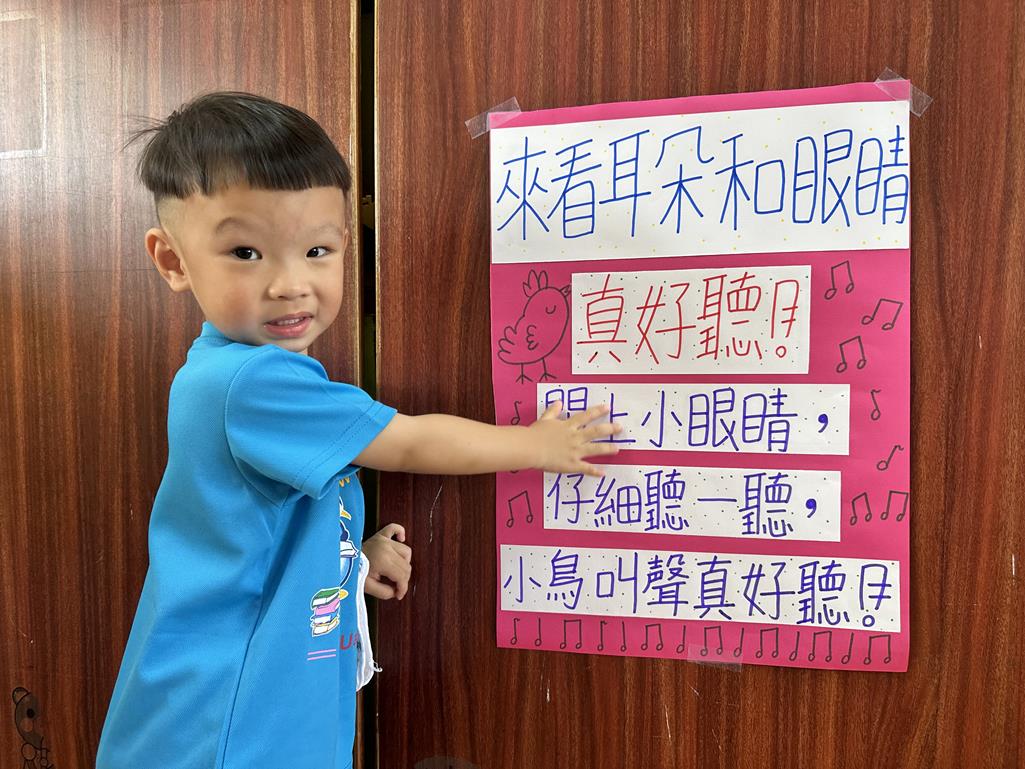 來看耳朵和眼睛
真好聽!
上小眼睛,
仔細聽一聽,
小鳥叫聲真好聽!